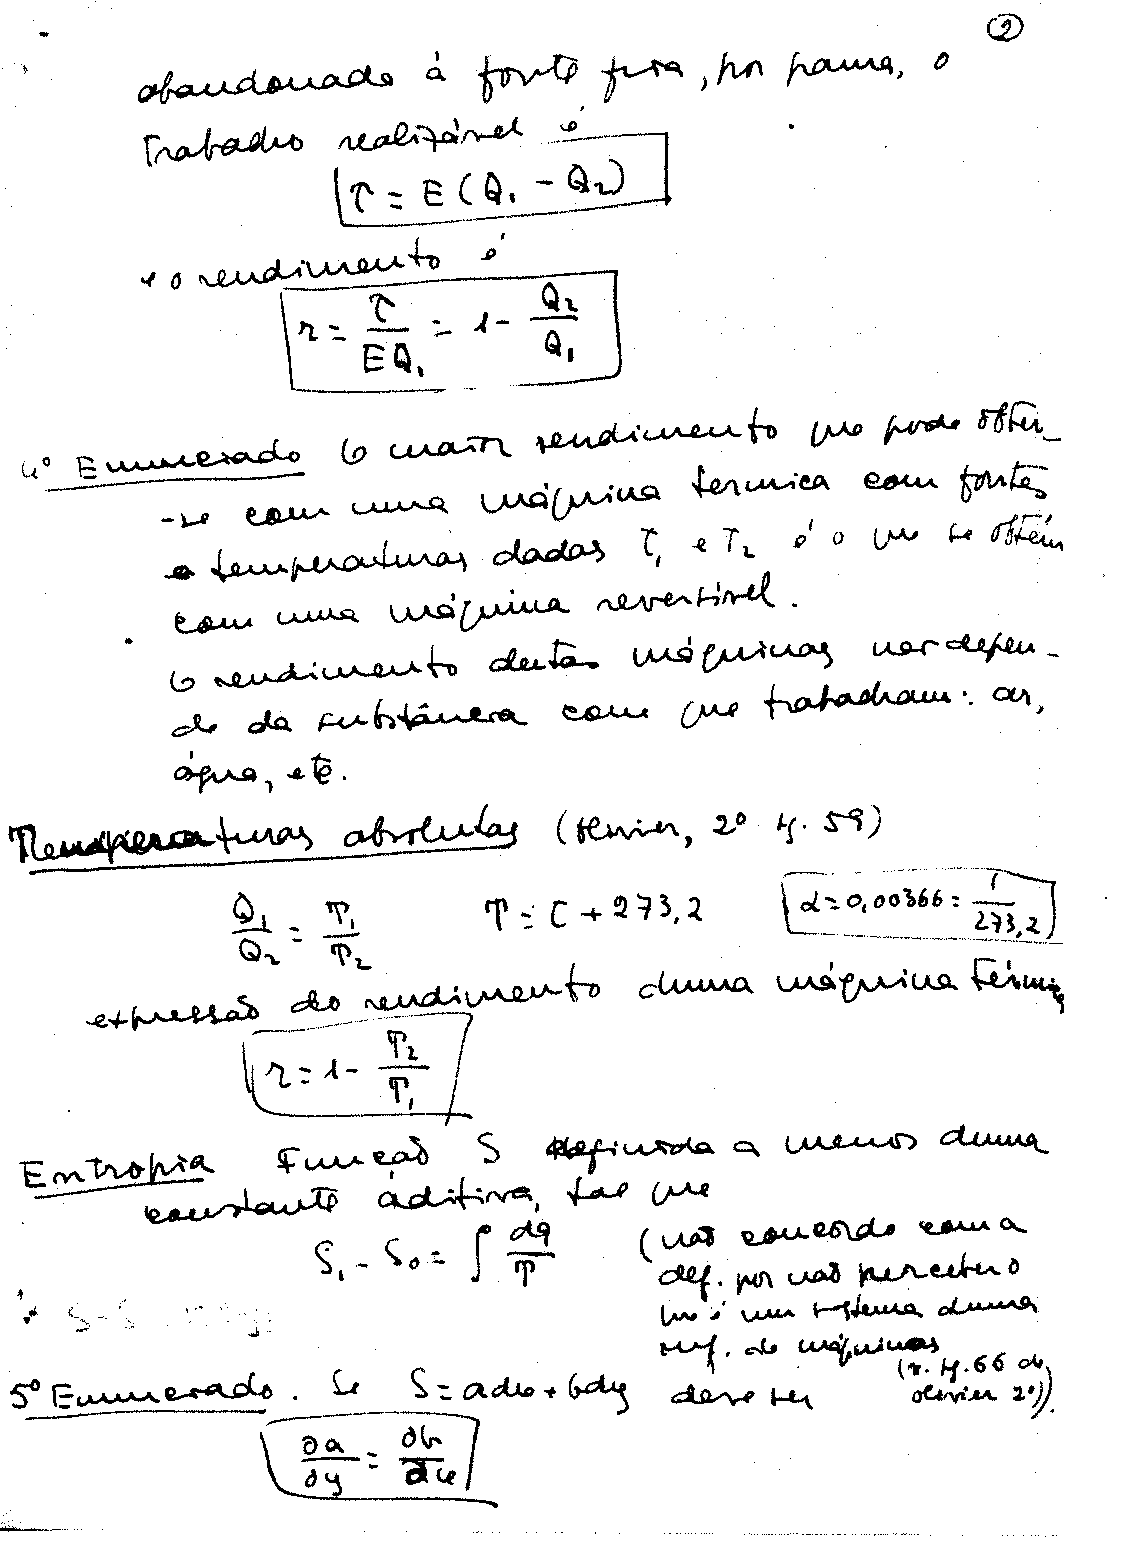 2
abandonado à fonte fria, por , o
trabalho realizável é
T = E(Q₁ - Q₂)
e o rendimento é
r = T/EQ₁ = 1 - Q₂/Q₁
4º Enunciado O maior rendimento que pode obter-
-se com uma máquina térmica com fontes
a temperaturas dadas T₁ e T₂ é o que se obtém
com uma máquina reversível.
O rendimento destas máquinas não depen-
de da substância com que trabalham: ar,
água, etc.
Temperaturas absolutas (Olivier, 2º pg. 59)
Q₁/Q₂ = T₁/T₂ T = C + 273,2 α = 0,00366 = 1/273,2
expressão do rendimento duma máquina térmica
r = 1 - T₂/T₁
Entropia Função S definida a menos duma
constante aditiva, tal que
S₁ - S₀ = ∫ dq/T (não concordo com a
def. por não perceber o
que é um sistema duma
 de máquinas
(v. pg. 66 do
5º Enunciado. Se S = adx + bdy deve ser Olivier 2º)).
∂a/∂y = ∂b/∂x